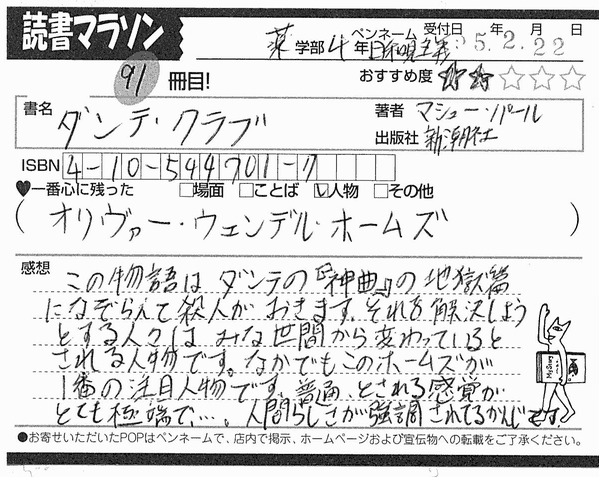 読書マラソン
薬 学部 4 年 ペンネーム 日和見主義 受付日 05.2.22 年 月 日
91 冊目!
おすすめ度 ★★☆☆☆
書名 ダンテ・クラブ
著者 マシュー・パール
出版社 新潮社
ISBN 4-10-544701-7
♥一番心に残った □場面 □ことば ☑人物 □その他
(オリヴァー・ウェンデル・ホームズ)
感想
この物語はダンテの『神曲』の地獄篇
になぞらえて殺人がおきます。それを解決しよう
とする人々はみな世間から変わっていると
される人物です。なかでもこのホームズが
1番の注目人物です。普通、とされる感覚が
とても極端で…。人間らしさが強調されてるかんじです。
●お寄せいただいたPOPはペンネームで、店内で掲示、ホームページおよび宣伝物への転載をご了承ください。